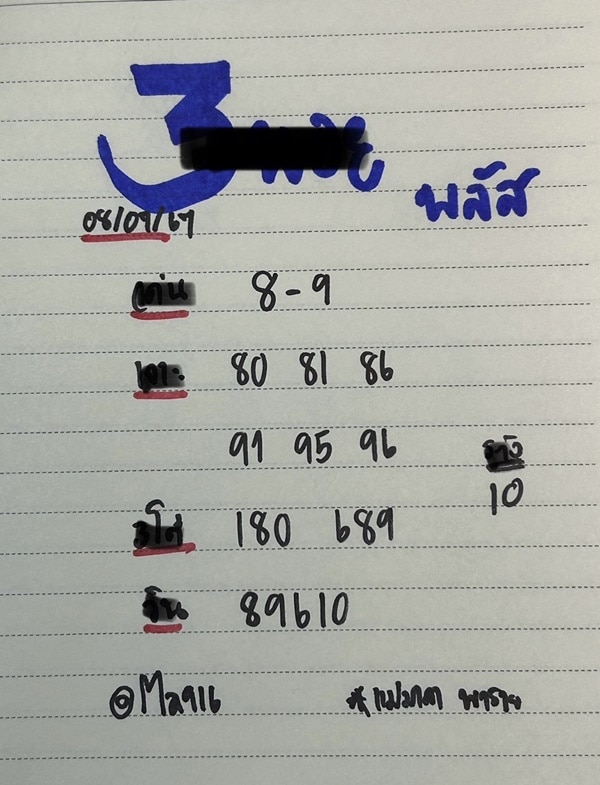 3
พลัส
08/07/67
เด่น 8-9
80 81 86
91 95 96
10
3โต 180 689
วิน 89610
@Ma916
*แม่มาดา พารวย